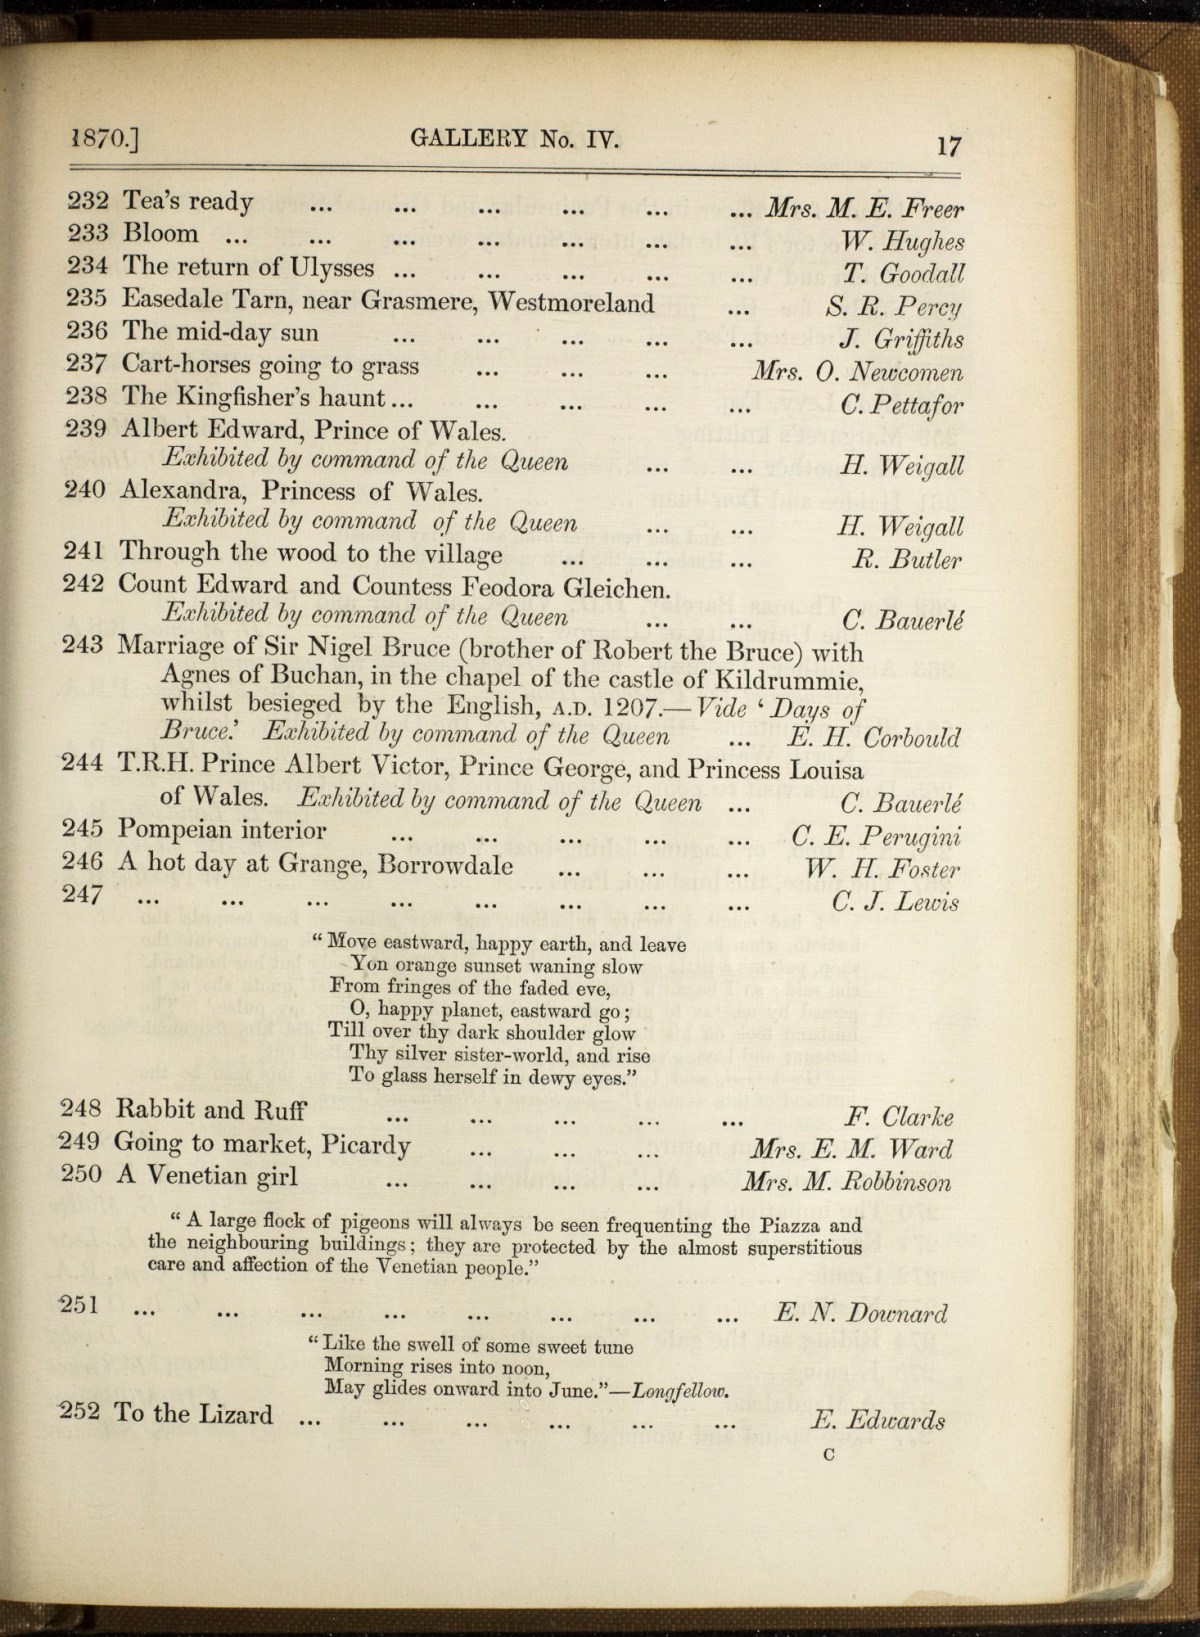 1870.] GALLERY No. IV. 17
232 Tea's ready ... ... ... ... ... ... Mrs. M. E. Freer
233 Bloom ... ... ... ... ... ... ... W. Hughes
234 The return of Ulysses ... ... ... ... ... T. Goodall
235 Easedale Tarn, near Grasmere, Westmoreland ... S. R. Percy
236 The mid-day sun ... ... ... ... ... J. Griffiths
237 Cart-horses going to grass ... ... ... Mrs. O. Newcomen
238 The Kingfisher's haunt ... ... ... ... ... C. Pettafor
239 Albert Edward, Prince of Wales.
Exhibited by command of the Queen ... ... H. Weigall
240 Alexandra, Princess of Wales.
Exhibited by command of the Queen ... ... H. Weigall
241 Through the wood to the village ... ... ... R. Butler
242 Count Edward and Countess Feodora Gleichen.
Exhibited by command of the Queen ... ... C. Bauerlé
243 Marriage of Sir Nigel Bruce (brother of Robert the Bruce) with
Agnes of Buchan, in the chapel of the castle of Kildrummie,
whilst besieged by the English, A.D. 1207.—Vide ‘Days of
Bruce.’ Exhibited by command of the Queen ... E. H. Corbould
244 T.R.H. Prince Albert Victor, Prince George, and Princess Louisa
of Wales. Exhibited by command of the Queen ... C. Bauerlé
245 Pompeian interior ... ... ... ... ... C. E. Perugini
246 A hot day at Grange, Borrowdale ... ... ... W. H. Foster
247 ... ... ... ... ... ... ... ... C. J. Lewis
“Move eastward, happy earth, and leave
Yon orange sunset waning slow
From fringes of the faded eve,
O, happy planet, eastward go;
Till over thy dark shoulder glow
Thy silver sister-world, and rise
To glass herself in dewy eyes.”
248 Rabbit and Ruff ... ... ... ... ... F. Clarke
249 Going to market, Picardy ... ... ... Mrs. E. M. Ward
250 A Venetian girl ... ... ... ... Mrs. M. Robbinson
“A large flock of pigeons will always be seen frequenting the Piazza and
the neighbouring buildings; they are protected by the almost superstitious
care and affection of the Venetian people.”
251 ... ... ... ... ... ... ... ... E. N. Downard
“Like the swell of some sweet tune
Morning rises into noon,
May glides onward into June.”—Longfellow.
252 To the Lizard ... ... ... ... ... ... E. Edwards
C